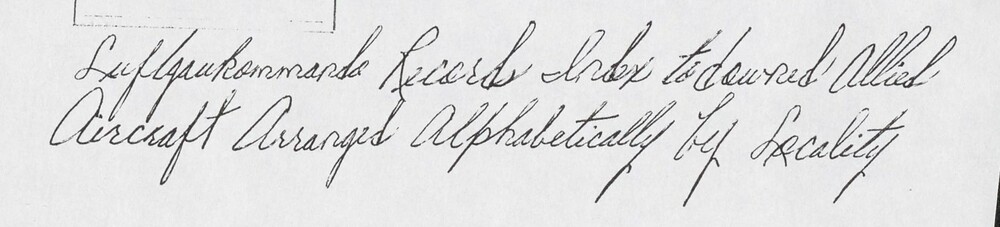 Luftgaukommando Records Index to downed Allied
Aircraft Arranged Alphabetically by Locality